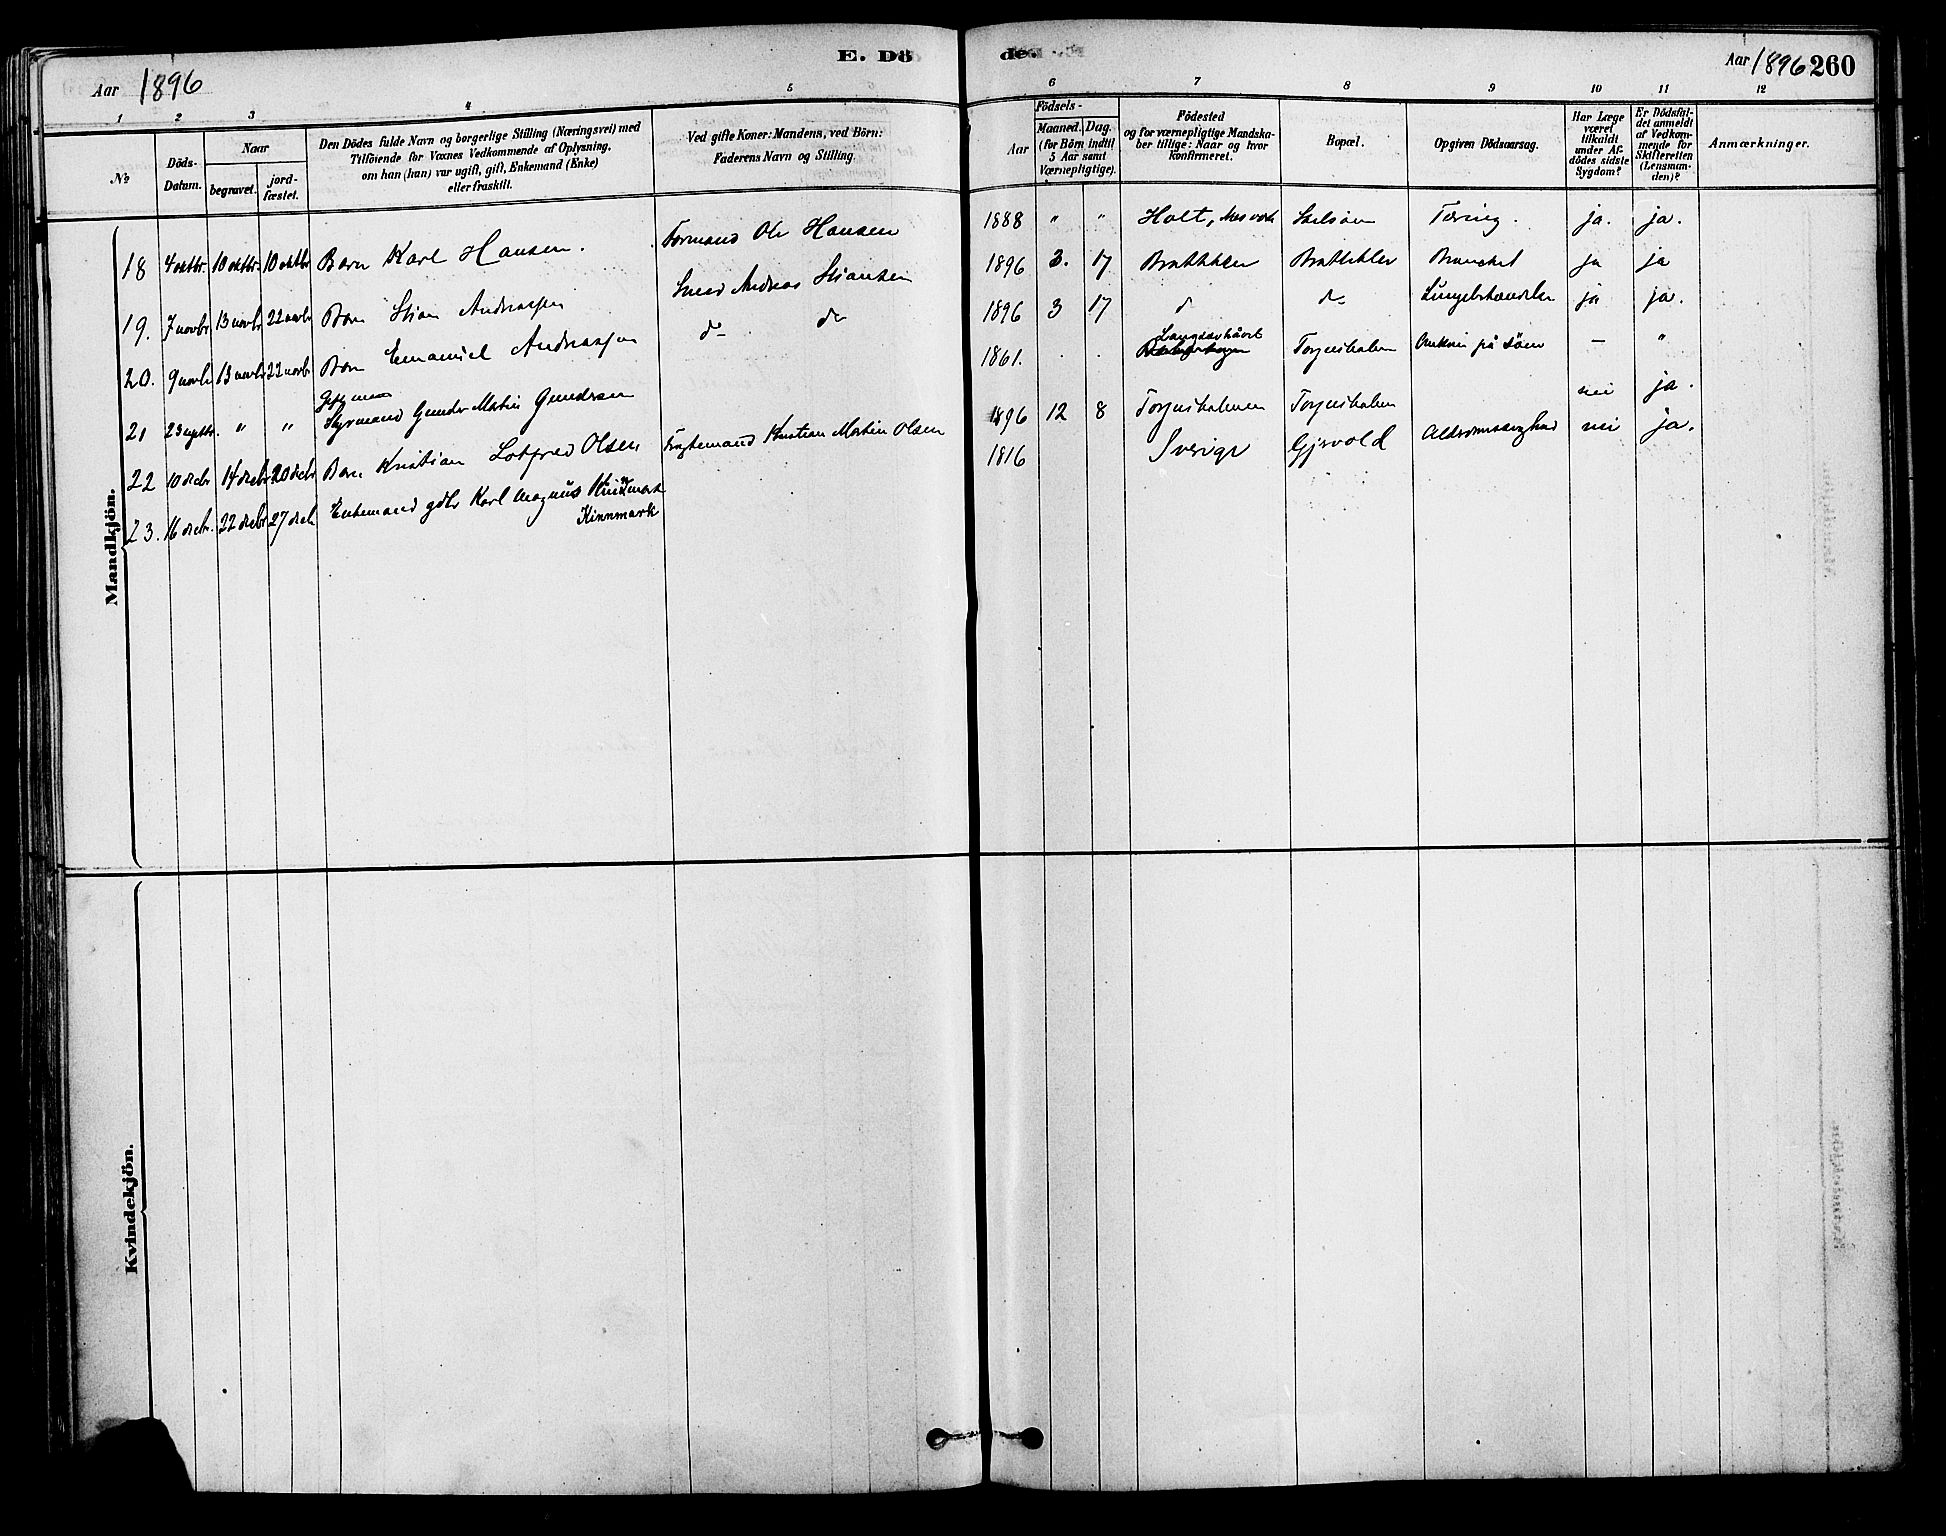 E. Döde.
Aar 1896
Aar 1896 260
1 2 3 4 5 6 7 8 9 10 11 12
No
Döds-Datum.
Naar
begravet.
jord-fæstet.
Den Dödes fulde Navn og borgerlige Stilling (Næringsvei) med
Tilföiende for Voxnes Vedkommende af Oplysning,
om han (hun) var ugift, gift, Enkemand (Enke)
eller fraskilt.
Ved gifte Koner: Mandens, ved Börn:
Faderens Navn og Stilling.
Födsels-
Aar
Maaned. Dag.
(for Börn indtil
5 Aar samt
Værnepligtige).
Födested
og for værnepligtige Mandska-
ber tillige: Naar og hvor
konfirmeret.
Bopæl.
Opgiven Dödsaarsag.
Har Læge
været
tilkaldt
under Af-
dödes sidste
Sygdom?
Er Dödsfal-
det anmeldt
af Vedkom-
mende for
Skifteretten
(Lensman-
den)?
Anmærkninger.
Mandkjön.
18 4 oktbr. 10 oktbr. 10 oktbr Barn Karl Hansen. Formand Ole Hansen 1888 " " Holt, Tæring. ja. ja.
19. 7 novbr 13 novbr 22 novbr Barn Stian Andreassen Andreas Stiansen 1896 3. 17 Brattekler Brattekler ja ja
20. 9 novbr 13 novbr 22 novbr Barn Emanuel Andreassen do do 1896 3 17 d do Lungebetændelse ja ja.
21 23 " " Gift
Styrmand Gunder Martin Gundersen 1861. . . Torjusholmen Omkom på Söen — "
22 10 decbr 14 decbr 20 decbr Barn Kristian Lotfred Olsen Kristian Martin Olsen 1896 12 8 Torjusholmen Torjusholmen nei ja.
23. 16 decbr. 22 decbr 27 decb Enkemand Karl Magnus
Kinnmark 1816 Sverige Gjevold Alderdomssvaghed nei ja.
Kvindekjön.